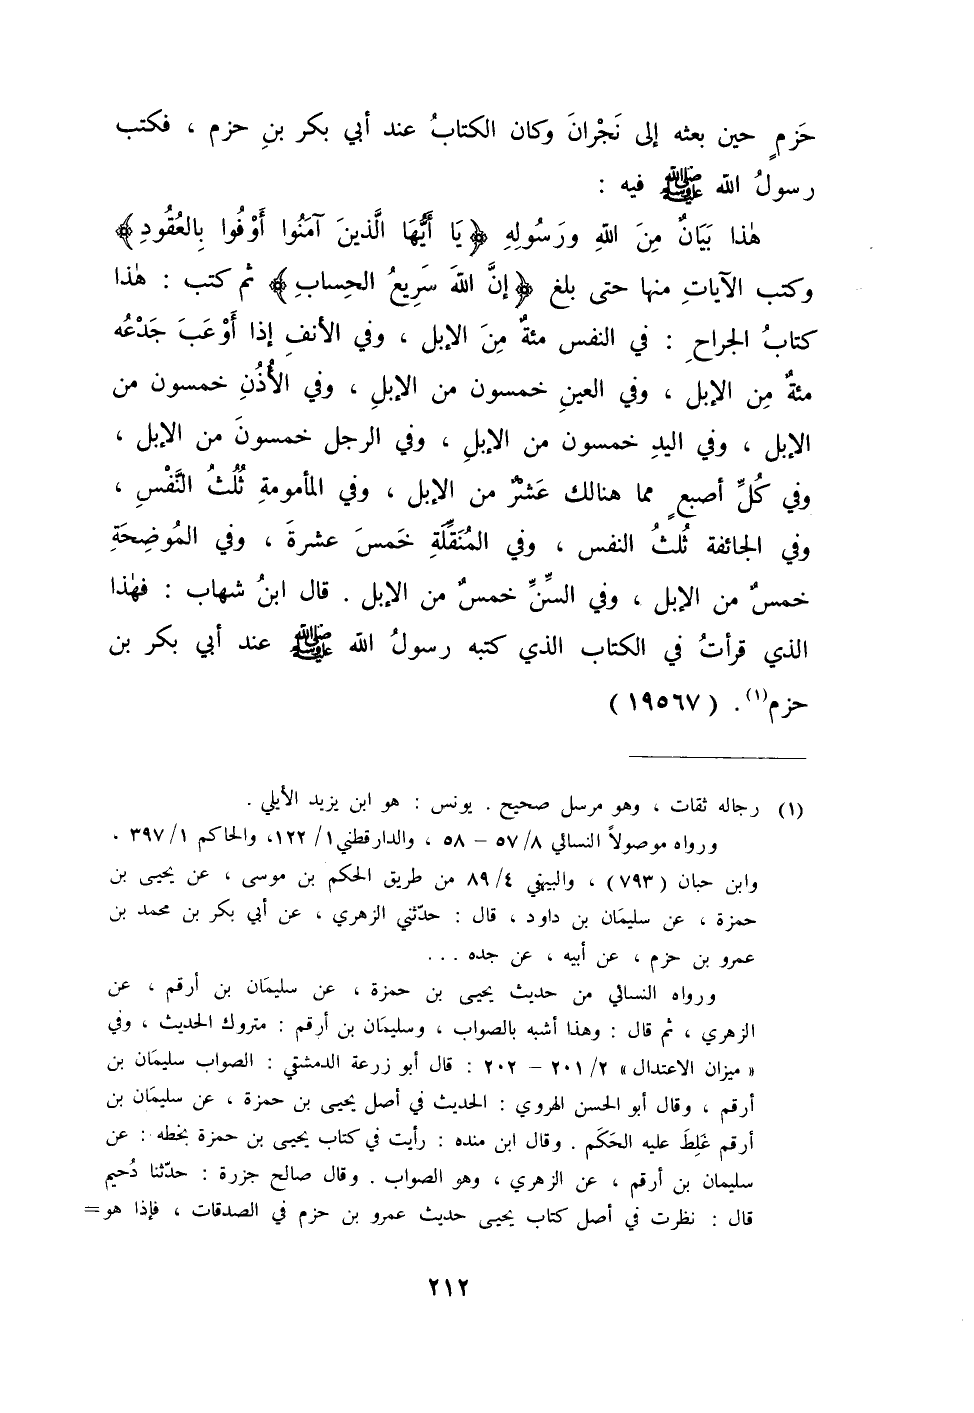 حَزمٍ حين بعثه إلى نَجْرانَ وكان الكتابُ عند أبي بكر بنِ حزم ، فكتب
رسولُ الله ﷺ فيه :
هٰذا بَيَانٌ مِنَ اللهِ ورَسُولِهِ ﴿يَا أَيُّهَا الَّذينَ آمَنُوا أَوْفُوا بِالعُقُودِ﴾
وكتب الآياتِ منها حتى بلغ ﴿إنَّ اللهَ سَرِيعُ الحِسابِ﴾ ثم كتب : هٰذا
كتابُ الجراحِ : في النفس مئةٌ مِنَ الإبل ، وفي الأنفِ إذا أَوْعَبَ جَدْعُه
مئةٌ مِن الإبل ، وفي العينِ خمسون من الإبلِ ، وفي الأُذُنِ خمسون من
الإبل ، وفي اليدِ خمسون من الإبلِ ، وفي الرجل خمسونَ من الإبل ،
وفي كُلِّ أصبعٍ مما هنالك عَشْرٌ من الإبل ، وفي المأمومةِ ثُلُثُ النَّفْسِ ،
وفي الجائفة ثُلثُ النفس ، وفي المُنَقِّلَةِ خَمسَ عشرةَ ، وفي المُوضِحَةِ
خمسٌ من الإبل ، وفي السِّنِّ خمسٌ من الإبل . قال ابنُ شهاب : فهٰذا
الذي قرأتُ في الكتاب الذي كتبه رسولُ الله ﷺ عند أبي بكر بن
حزم(١) . (١٩٥٦٧)
(١) رجاله ثقات ، وهو مرسل صحيح . يونس : هو ابن يزيد الأيلي .
ورواه موصولاً النسائي ٥٧/٨ – ٥٨ ، والدارقطني ١/ ١٢٢، والحاكم ٣٩٧/١ .
وابن حبان (٧٩٣) ، والبيهقي ٨٩/٤ من طريق الحكم بن موسى ، عن يحيى بن
حمزة ، عن سليمان بن داود ، قال : حدّثني الزهري ، عن أبي بكر بن محمد بن
عمرو بن حزم ، عن أبيه ، عن جده ...
ورواه النسائي من حديث يحيى بن حمزة ، عن سليمان بن أرقم ، عن
الزهري ، ثم قال : وهذا أشبه بالصواب ، وسليمان بن أرقم : متروك الحديث ، وفي
« ميزان الاعتدال » ٢٠١/٢ – ٢٠٢ : قال أبو زرعة الدمشقي : الصواب سليمان بن
أرقم ، وقال أبو الحسن الهروي : الحديث في أصل يحيى بن حمزة ، عن سليمان بن
أرقم غَلِطَ عليه الحَكَم . وقال ابن منده : رأيت في كتاب يحيى بن حمزة بخطه : عن
سليمان بن أرقم ، عن الزهري ، وهو الصواب . وقال صالح جزرة : حدّثنا دُحيم
قال : نظرت في أصل كتاب يحيى حديث عمرو بن حزم في الصدقات ، فإذا هو=
٢١٢